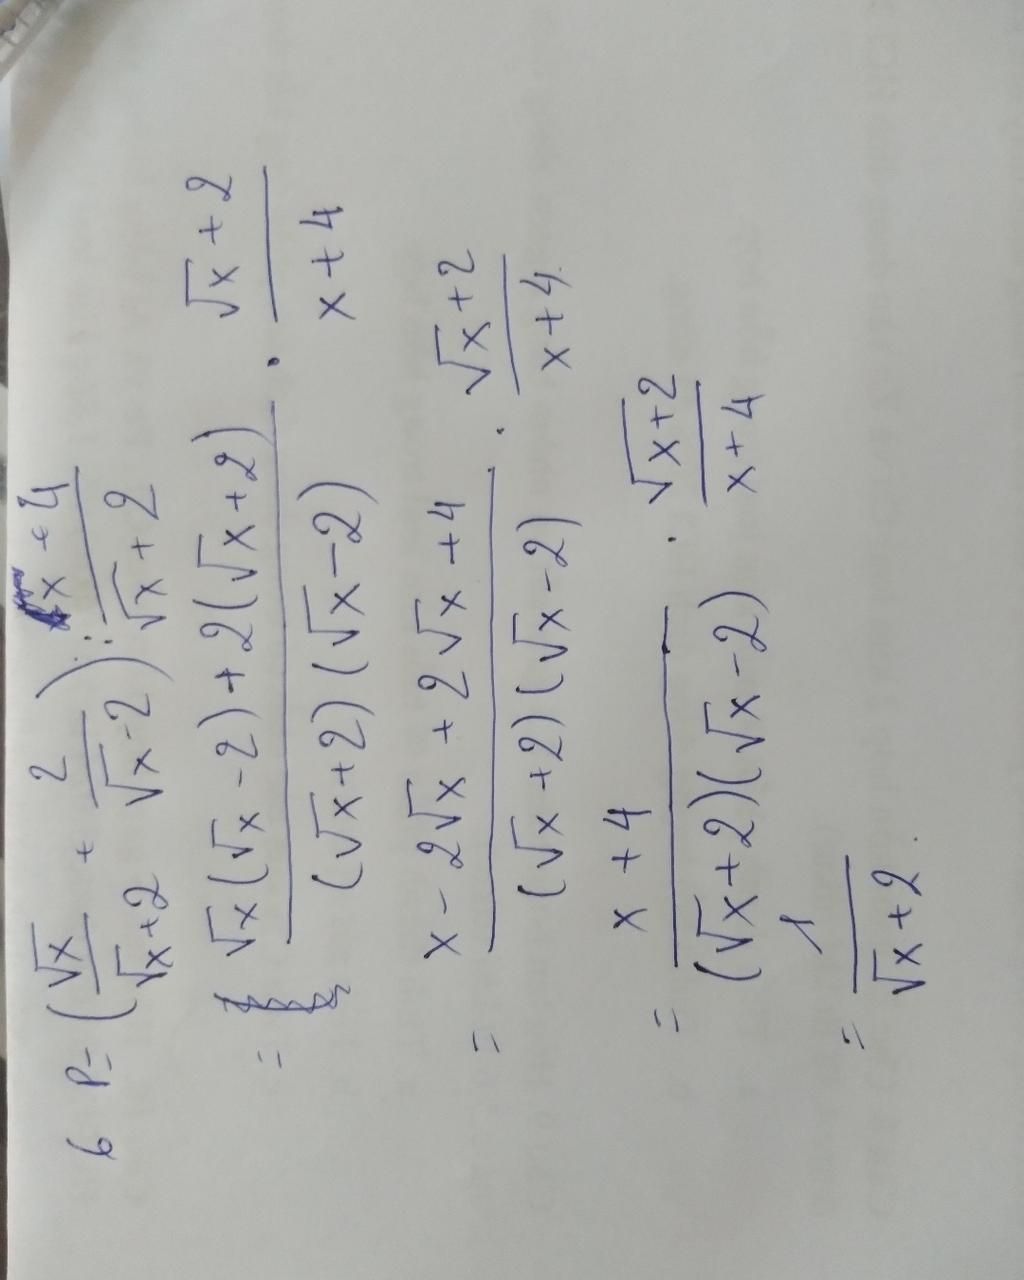 6 P = (√x/(√x+2) + 2/(√x-2)) : (x+4)/(√x+2)
= (√x(√x-2)+2(√x+2))/((√x+2)(√x-2)) . (√x+2)/(x+4)
= (x-2√x+2√x+4)/((√x+2)(√x-2)) . (√x+2)/(x+4)
= (x+4)/((√x+2)(√x-2)) . (√x+2)/(x+4)
= 1/(√x+2).